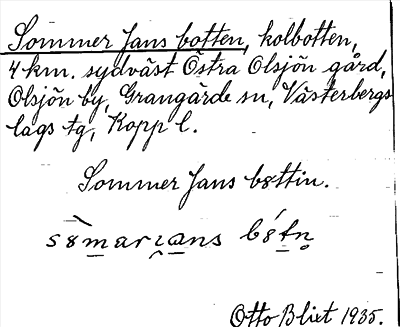 Sommer Jans botten, kolbotten,
4 km. sydväst Östra Olsjön gård,
Olsjön by, Grangärde sn, Västerbergs
lags tg, Kopp l.
Sommer Jans bottin.
Otto Blixt 1935.